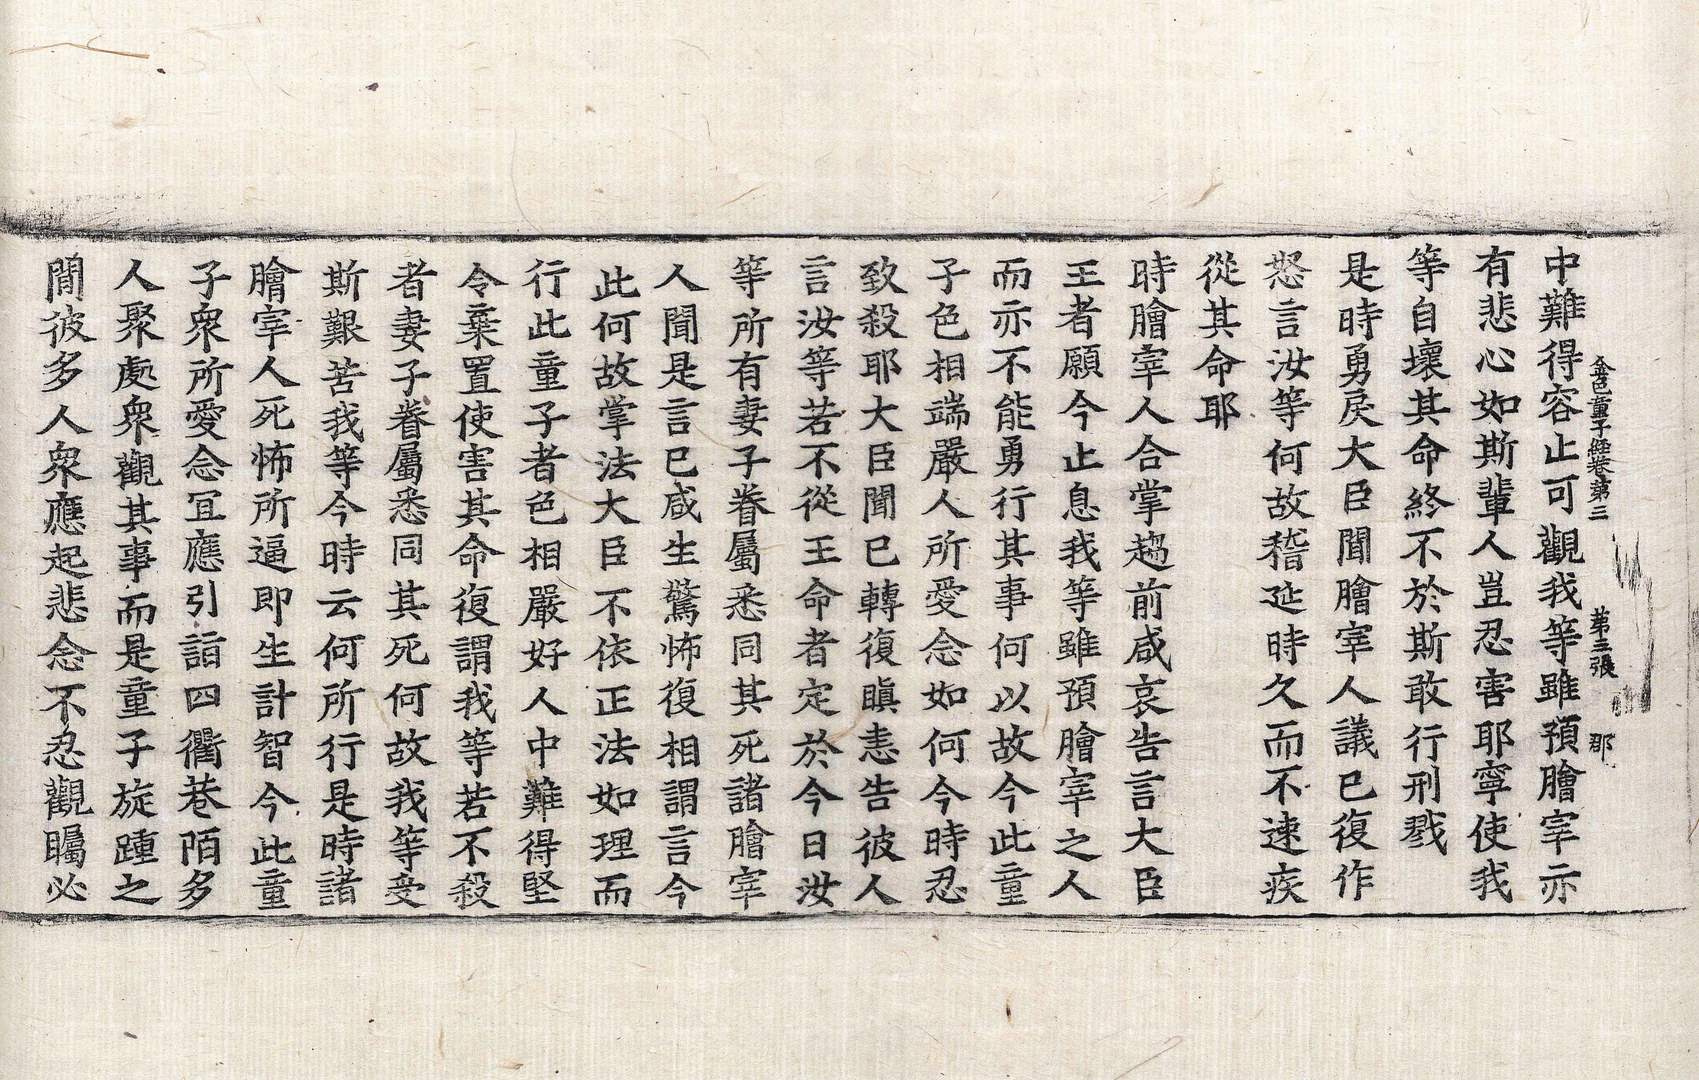 金色童子經卷第三　第三張　那
中難得容止可觀我等雖預膾宰亦
有悲心如斯輩人豈忍害耶寧使我
等自壞其命終不於斯敢行刑戮
是時勇戾大臣聞膾宰人議已復作
怒言汝等何故稽延時久而不速疾
從其命耶
時膾宰人合掌趨前咸哀告言大臣
王者願今止息我等雖預膾宰之人
而亦不能勇行其事何以故今此童
子色相端嚴人所愛念如何今時忍
致殺耶大臣聞已轉復瞋恚告彼人
言汝等若不從王命者定於今日汝
等所有妻子眷屬悉同其死諸膾宰
人聞是言已咸生驚怖復相謂言今
此何故掌法大臣不依正法如理而
行此童子者色相嚴好人中難得堅
令棄置使害其命復謂我等若不殺
者妻子眷屬悉同其死何故我等受
斯艱苦我等今時云何所行是時諸
膾宰人死怖所逼即生計智今此童
子衆所愛念宜應引詣四衢巷陌多
人聚處衆觀其事而是童子旋踵之
間彼多人衆應起悲念不忍觀矚必